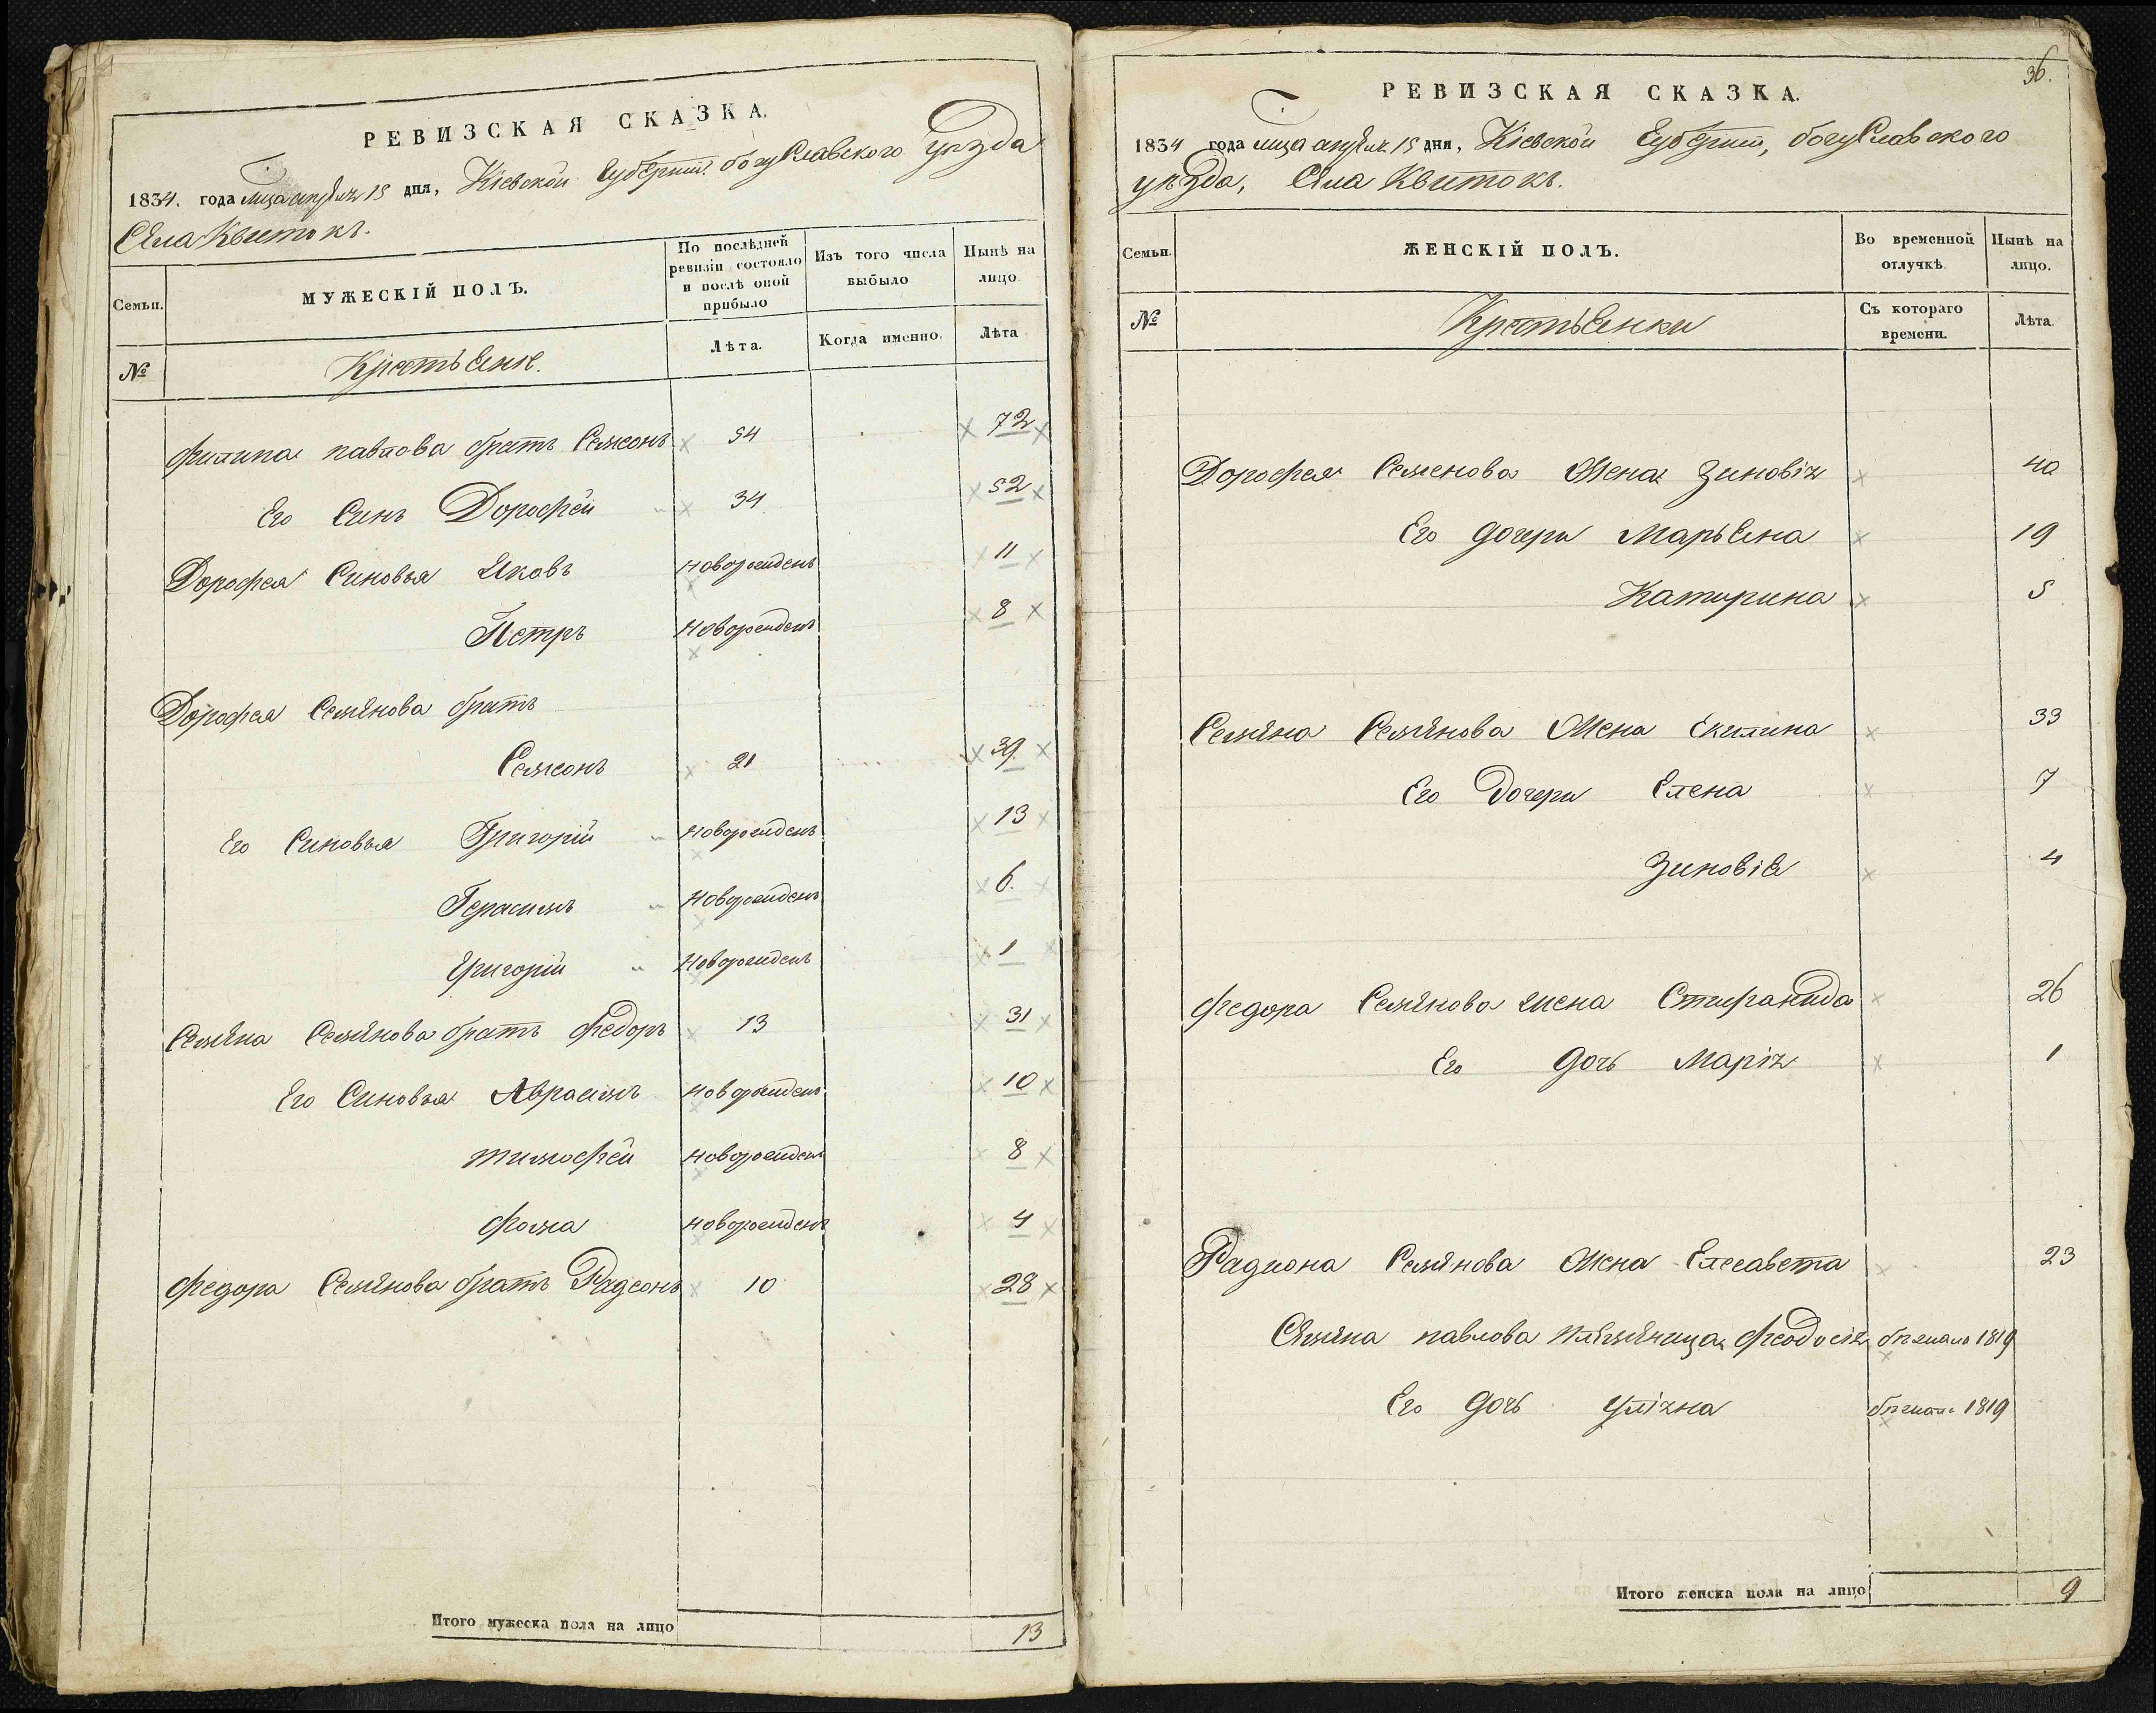 РЕВИЗСКАЯ СКАЗКА.
1834. года мца апреля 15 дня, Кіевской Губерніи богуславского уезда
Села Квитокъ.
Семьи. МУЖЕСКІЙ ПОЛЪ. По послѣдней ревизіи состояло и послѣ оной прибыло Изъ того числа выбыло Нынѣ на лицо
№ Крестьяне. Лѣта. Когда именно. Лѣта
Филипа павлова братъ Семіонъ 54 72
Его Синъ Дорофей 34 52
Дорофея Синовья Яковъ новорожденъ 11
Петръ новорожденъ 8
Дорофея Семѣнова братъ
Семіонъ 21 39
Его Синовья Григорій новорожденъ 13
Герасимъ новорожденъ 6.
Григорій новорожденъ 1
Семѣна Семѣнова братъ Федоръ 13 31
Его Синовья Авраамъ новорожденъ 10
тимофей новорожденъ 8
Фома новорожденъ 4
Федора Семѣнова братъ Радеонъ 10 28
Итого мужеска пола на лицо 13
36.
РЕВИЗСКАЯ СКАЗКА.
1834 года мца апреля 15 дня, Кіевской Губерніи, богуславского
уѣзда, Села Квитокъ.
Семьи. ЖЕНСКІЙ ПОЛЪ. Во временной отлучкѣ Нынѣ на лицо.
№ Крестьянки Съ котораго времени. Лѣта.
Дорофея Семенова Жена Зиновія 40
Его дочери Марьяна 19
Катирина 5
Семѣна Семѣнова Жена Екилина 33
Его Дочери Елена 7
Зиновія 4
Федора Семѣнова жена Стифанида 26
Его дочь Марія 1
Радиона Семѣнова Жена Елесавета 23
Семѣна павлова племѣница Феодосія бѣжала 1819
Его дочь Уліяна бѣжала 1819
Итого женска пола на лицо 9